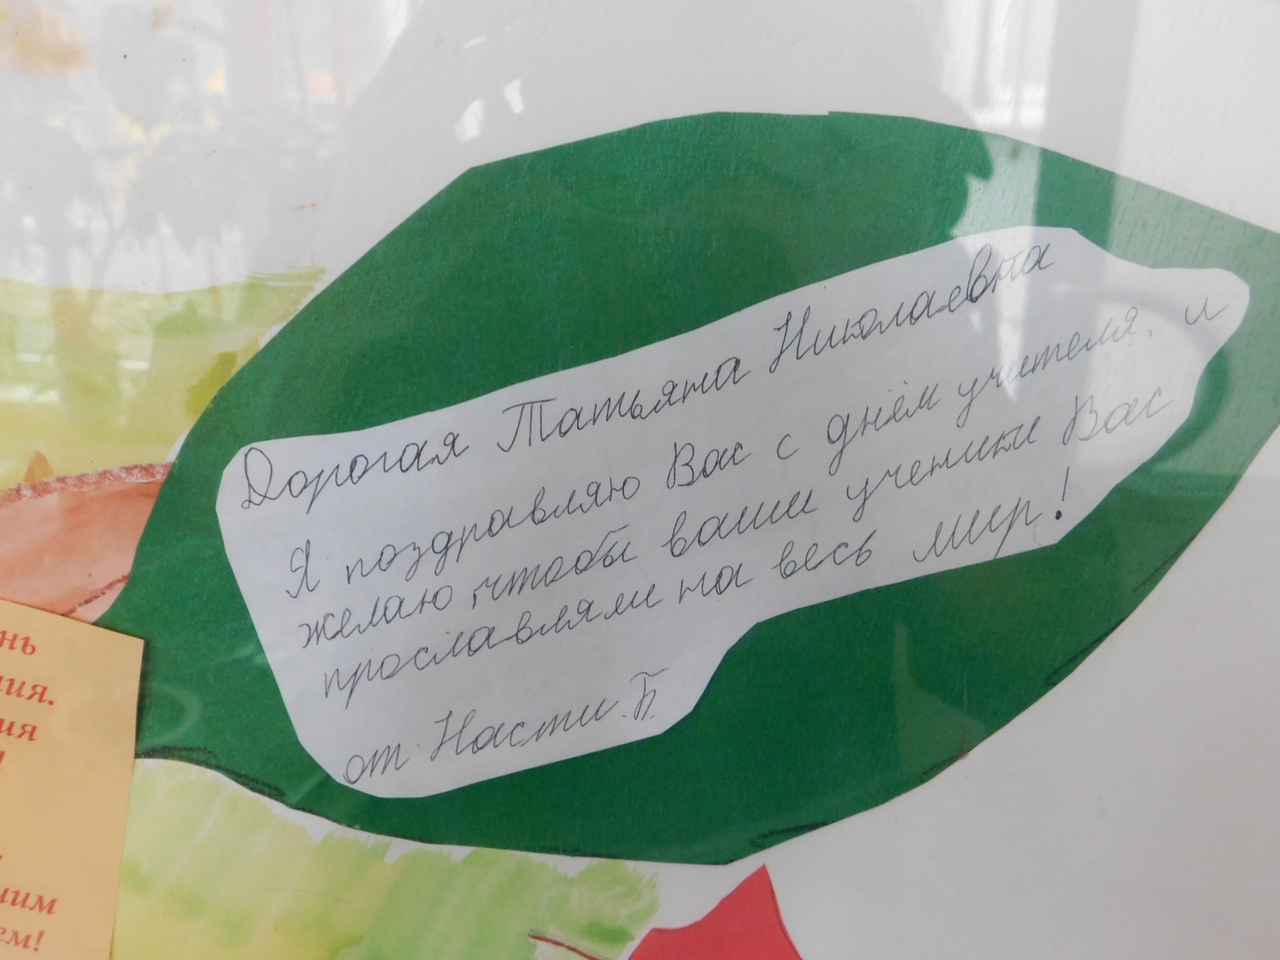 Дорогая Татьяна Николаевна
Я поздравляю Вас с днём учителя, и
желаю, чтобы ваши ученики Вас
прославляли на весь мир!
от Насти Б.
нь
ия.
ия
!
ним
ем!